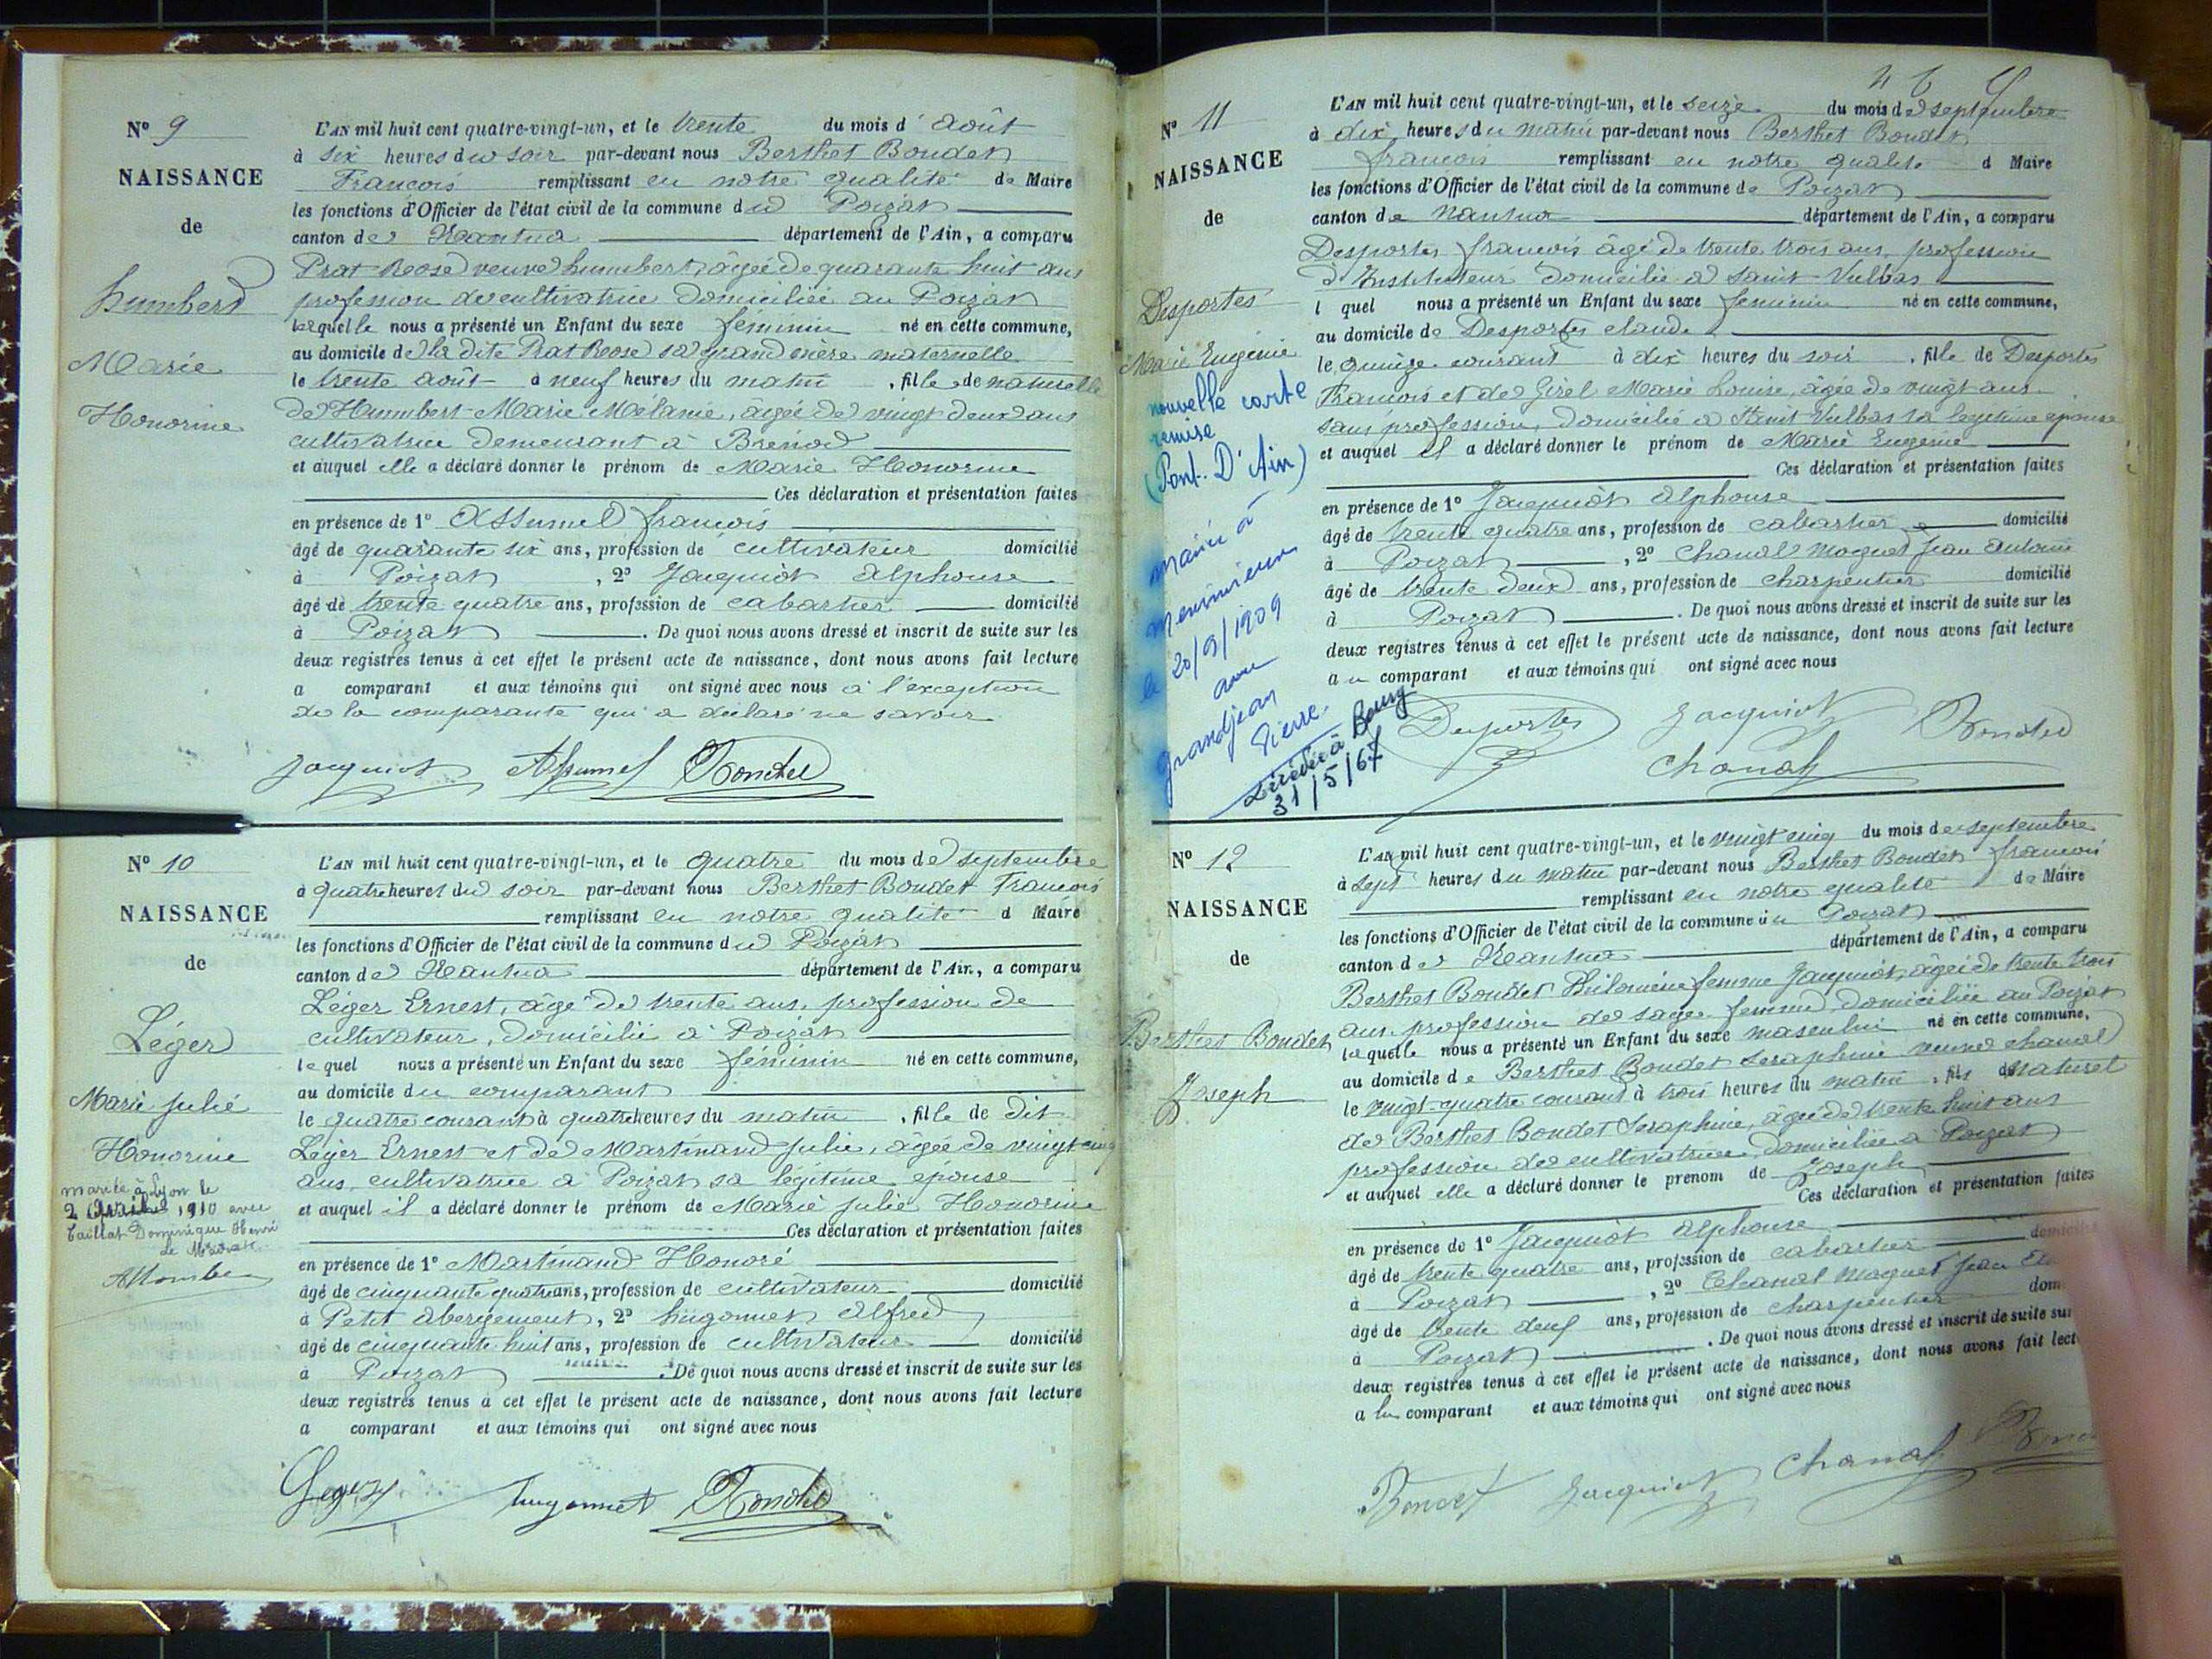 Nº 9
NAISSANCE
de
humbert
Marie
Honorine
L'AN mil huit cent quatre-vingt-un, et le trente du mois d' août
à six heures du soir par-devant nous Berthet Bondet
Francois remplissant en notre qualité de Maire
les fonctions d'Officier de l'état civil de la commune du Poizat
canton de Nantua département de l'Ain, a comparu
Prat Rose veuve humbert, âgée de quarante huit ans
profession de cultivatrice domiciliée au Poizat
laquelle nous a présenté un Enfant du sexe féminin né en cette commune,
au domicile de la dite Prat Rose sa grand mère maternelle
le trente août à neuf heures du matin , fille de naturelle
de Humbert Marie Mélanie, âgée de vingt deux ans
cultivatrice demeurant à Brénod
et auquel elle a déclaré donner le prénom de Marie Honorine
Ces déclaration et présentation faites
en présence de 1º Assumel francois
âgé de quarante six ans, profession de cultivateur domicilié
à Poizat , 2º Jacquiot Alphonse
âgé de trente quatre ans, profession de cabartier domicilié
à Poizat . De quoi nous avons dressé et inscrit de suite sur les
deux registres tenus à cet effet le présent acte de naissance, dont nous avons fait lecture
a comparant et aux témoins qui ont signé avec nous à l'exception
de la comparante qui a déclaré ne savoir
Jacquiot Assumel Bondet
Nº 10
NAISSANCE
de
Léger
Marie Julie
Honorine
mariée à Lyon le
2 1910 avec
Taillat Dominique Henri
Le
L'AN mil huit cent quatre-vingt-un, et le quatre du mois de septembre
à quatre heures du soir par-devant nous Berthet Bondet Francois
remplissant en notre qualité d Maire
les fonctions d'Officier de l'état civil de la commune du Poizat
canton de Nantua département de l'Ain, a comparu
Léger Ernest, âgé de trente ans, profession de
cultivateur, domicilié à Poizat
le quel nous a présenté un Enfant du sexe féminin né en cette commune,
au domicile du comparant
le quatre courant à quatre heures du matin , fille de dit
Léger Ernest et de Martinand Julie, âgée de vingt cinq
ans cultivatrice à Poizat sa légitime épouse
et auquel il a déclaré donner le prénom de Marie Julie Honorine
Ces déclaration et présentation faites
en présence de 1º Martinand Honoré
âgé de cinquante quatre ans, profession de cultivateur domicilié
à Petit abergement, 2º hugonnet Alfred
âgé de cinquante huit ans, profession de cultivateur domicilié
à Poizat . De quoi nous avons dressé et inscrit de suite sur les
deux registres tenus à cet effet le présent acte de naissance, dont nous avons fait lecture
a comparant et aux témoins qui ont signé avec nous
Leger hugonnet Bondet
Nº 11
NAISSANCE
de
Desportes
Marie Eugénie
nouvelle carte
remise
(Pont. D'Ain)
mariée à
Meximieux
le 20/9/1909
avec
Grandjean
Pierre.
Décédée à Bourg
31/5/67
L'AN mil huit cent quatre-vingt-un, et le seize du mois de septembre
à dix heures du matin par-devant nous Berthet Bondet
francois remplissant en notre qualité d Maire
les fonctions d'Officier de l'état civil de la commune de Poizat
canton de Nantua département de l'Ain, a comparu
Desportes francois âgé de trente trois ans, profession
d'Instituteur domicilié à saint Vulbas
l quel nous a présenté un Enfant du sexe féminin né en cette commune,
au domicile de Desportes claude
le quinze courant à dix heures du soir , fille de Desportes
Francois et de Girel Marie Louise, âgée de vingt ans
sans profession, domicilié à Saint Vulbas sa légitime épouse
et auquel il a déclaré donner le prénom de Marie Eugénie
Ces déclaration et présentation faites
en présence de 1º Jacquiot Alphonse
âgé de trente quatre ans, profession de cabartier domicilié
à Poizat , 2º Chanal Moquet Jean Antoine
âgé de trente deux ans, profession de charpentier domicilié
à Poizat . De quoi nous avons dressé et inscrit de suite sur les
deux registres tenus à cet effet le présent acte de naissance, dont nous avons fait lecture
a u comparant et aux témoins qui ont signé avec nous
Desportes Jacquiot Bondet
Chanal
Nº 12
NAISSANCE
de
Berthet Bondet
Joseph
L'AN mil huit cent quatre-vingt-un, et le vingt cinq du mois de septembre
à sept heures du matin par-devant nous Berthet Bondet francois
remplissant en notre qualité de Maire
les fonctions d'Officier de l'état civil de la commune du Poizat
canton de Nantua département de l'Ain, a comparu
Berthet Bondet Philomène femme Jacquiot, âgée de trente trois
ans profession de sage femme, domiciliée au Poizat
laquelle nous a présenté un Enfant du sexe masculin né en cette commune,
au domicile de Berthet Bondet Seraphine veuve chanal
le vingt-quatre courant à trois heures du matin , fils naturel
de Berthet Bondet Seraphine, âgée de trente huit ans
profession de cultivatrice, domiciliée à Poizat
et auquel elle a déclaré donner le prenom de Joseph
Ces déclaration et présentation faites
en présence de 1º Jacquiot Alphonse
âgé de trente quatre ans, profession de cabartier
à Poizat , 2º Chanal Moquet Jean
âgé de trente deux ans, profession de charpentier dom
à Poizat . De quoi nous avons dressé et inscrit de suite sur
deux registres tenus à cet effet le présent acte de naissance, dont nous avons fait lect
a la comparant et aux témoins qui ont signé avec nous
Bondet Jacquiot Chanal